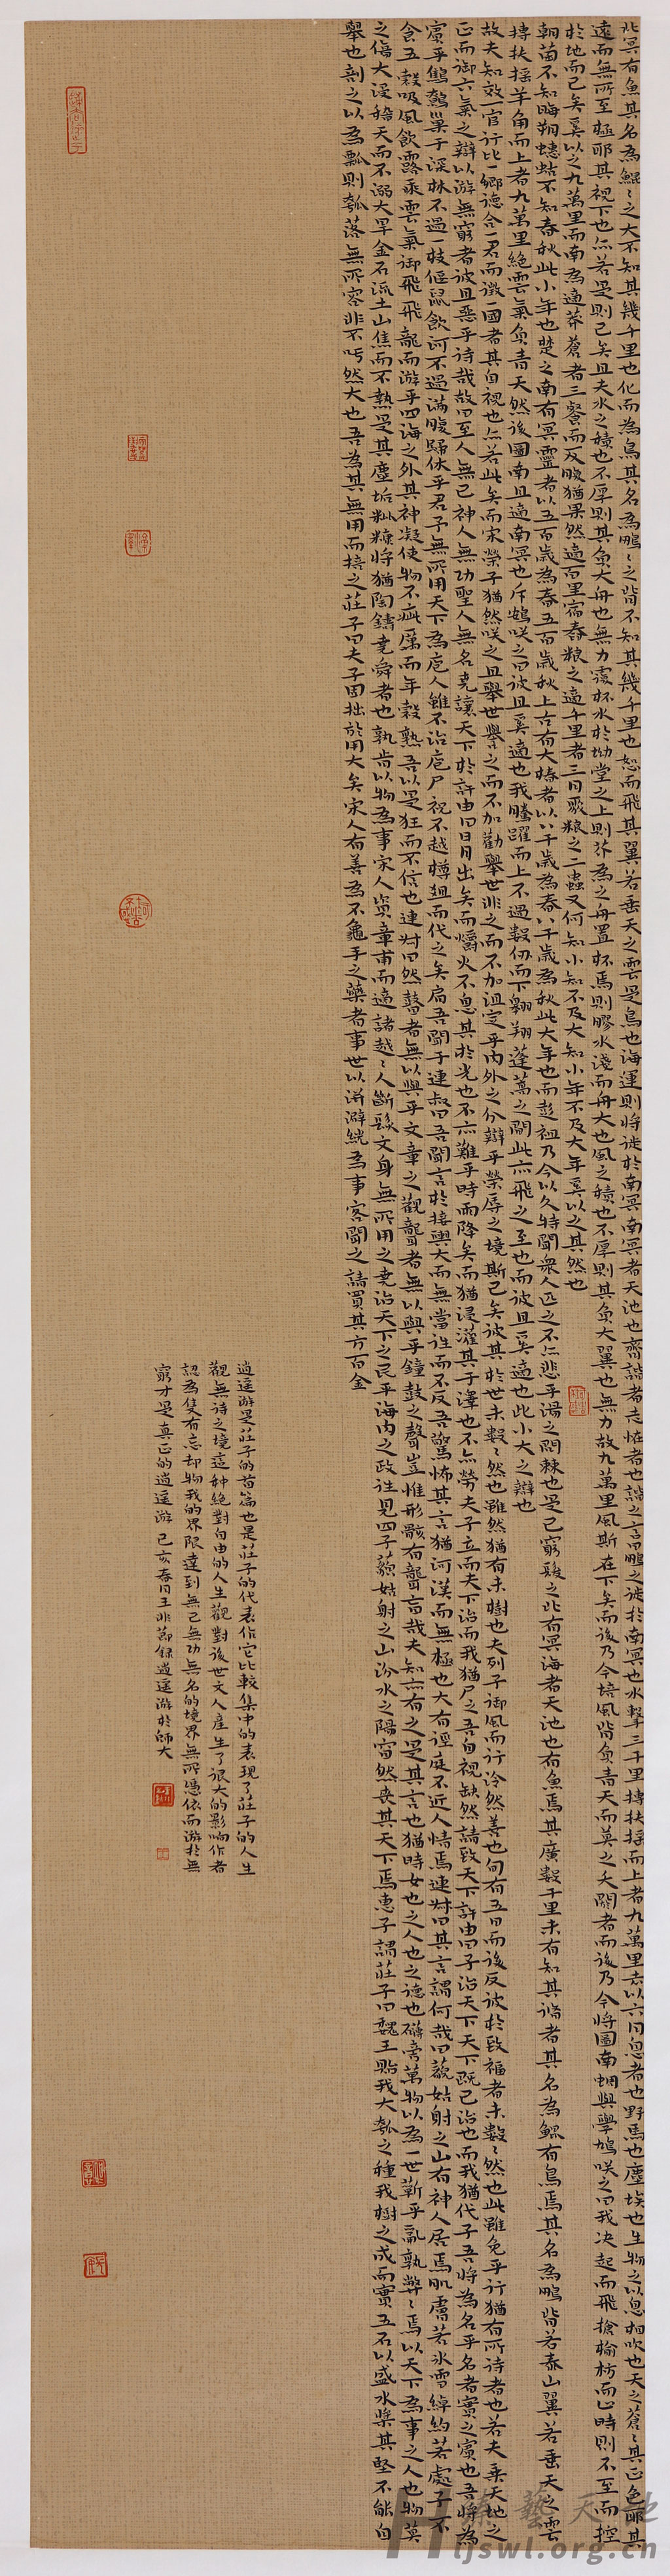 北冥有魚其名為鯤〻之大不知其幾千里也化而為鳥其名為鵬〻之背不知其幾千里也怒而飛其翼若垂天之雲是鳥也海運則將徙於南冥南冥者天池也齊諧者志怪者也諧之言曰鵬之徙於南冥也水擊三千里摶扶搖而上者九萬里去以六月息者也野馬也塵埃也生物之以息相吹也天之蒼〻其正色耶其
遠而無所至極耶其視下也亦若是則已矣且夫水之積也不厚則其負大舟也無力覆杯水於坳堂之上則芥為之舟置杯焉則膠水淺而舟大也風之積也不厚則其負大翼也無力故九萬里風斯在下矣而後乃今培風背負青天而莫之夭閼者而後乃今將圖南蜩與學鳩笑之曰我決起而飛搶榆枋而止時則不至而控
於地而已矣奚以之九萬里而南為適莽蒼者三餐而反腹猶果然適百里宿舂糧之適千里者三月聚糧之二蟲又何知小知不及大知小年不及大年奚以之其然也
朝菌不知晦朔蟪蛄不知春秋此小年也楚之南有冥靈者以五百歲為春五百歲秋上古有大椿者以八千歲為春八千歲為秋此大年也而彭祖乃今以久特聞衆人匹之不亦悲乎湯之問棘也是已窮髮之北有冥海者天池也有魚焉其廣數千里未有知其脩者其名為鯤有鳥焉其名為鵬背若泰山翼若垂天之雲
摶扶搖羊角而上者九萬里絕雲氣負青天然後圖南且適南冥也斥鴳笑之曰彼且奚適也我騰躍而上不過數仞而下翱翔蓬蒿之間此亦飛之至也而彼且奚適也此小大之辯也
故夫知效一官行比一鄉德合一君而徵一國者其自視也亦若此矣而宋榮子猶然笑之且舉世譽之而不加勸舉世非之而不加沮定乎內外之分辯乎榮辱之境斯已矣彼其於世未數〻然也雖然猶有未樹也夫列子御風而行泠然善也旬有五日而後反彼於致福者未數〻然也此雖免乎行猶有所待者也若夫乘天地之
正而御六氣之辯以游無窮者彼且惡乎待哉故曰至人無己神人無功聖人無名堯讓天下於許由曰日月出矣而爝火不息其於光也不亦難乎時雨降矣而猶浸灌其于澤也不亦勞夫子立而天下治而我猶尸之吾自視缺然請致天下許由曰子治天下天下既已治也而我猶代子吾將為名乎名者實之賓也吾將為
賓乎鷦鷯巢于深林不過一枝偃鼠飲河不過滿腹歸休乎君予無所用天下為庖人雖不治庖尸祝不越樽俎而代之矣肩吾聞于連叔曰吾聞言於接輿大而無當往而不反吾驚怖其言猶河漢而無極也大有逕庭不近人情焉連叔曰其言謂何哉曰藐姑射之山有神人居焉肌膚若冰雪綽約若處子不
食五穀吸風飲露乘雲氣御飛飛龍而游乎四海之外其神凝使物不疵厲而年穀熟吾以是狂而不信也連叔曰然瞽者無以與乎文章之觀聾者無以與乎鐘鼓之聲豈惟形骸有聾盲哉夫知亦有之是其言也猶時女也之人也之德也磅礴萬物以為一世蘄乎亂孰弊〻焉以天下為事之人也物莫
之傷大浸稽天而不溺大旱金石流土山焦而不熱是其塵垢粃糠將猶陶鑄堯舜者也孰肯以物為事宋人資章甫而適諸越〻人斷髮文身無所用之堯治天下之民平海內之政往見四子藐姑射之山汾水之陽窅然喪其天下焉惠子謂莊子曰魏王貽我大瓠之種我樹之成而實五石以盛水漿其堅不能自
舉也剖之以為瓢則瓠落無所容非不呺然大也吾為其無用而掊之莊子曰夫子固拙於用大矣宋人有善為不龜手之藥者事世以洴澼絖為事客聞之請買其方百金
逍遥游是莊子的首篇也是莊子的代表作它比較集中的表現了莊子的人生
觀無待之境這种絕對自由的人生觀對後世文人產生了很大的影响作者
認為隻有忘却物我的界限達到無己無功無名的境界無所憑依而游於無
窮才是真正的逍遥游 己亥春月王非節錄逍遥游於師大
臻藝天地
Hljswl.org.cn